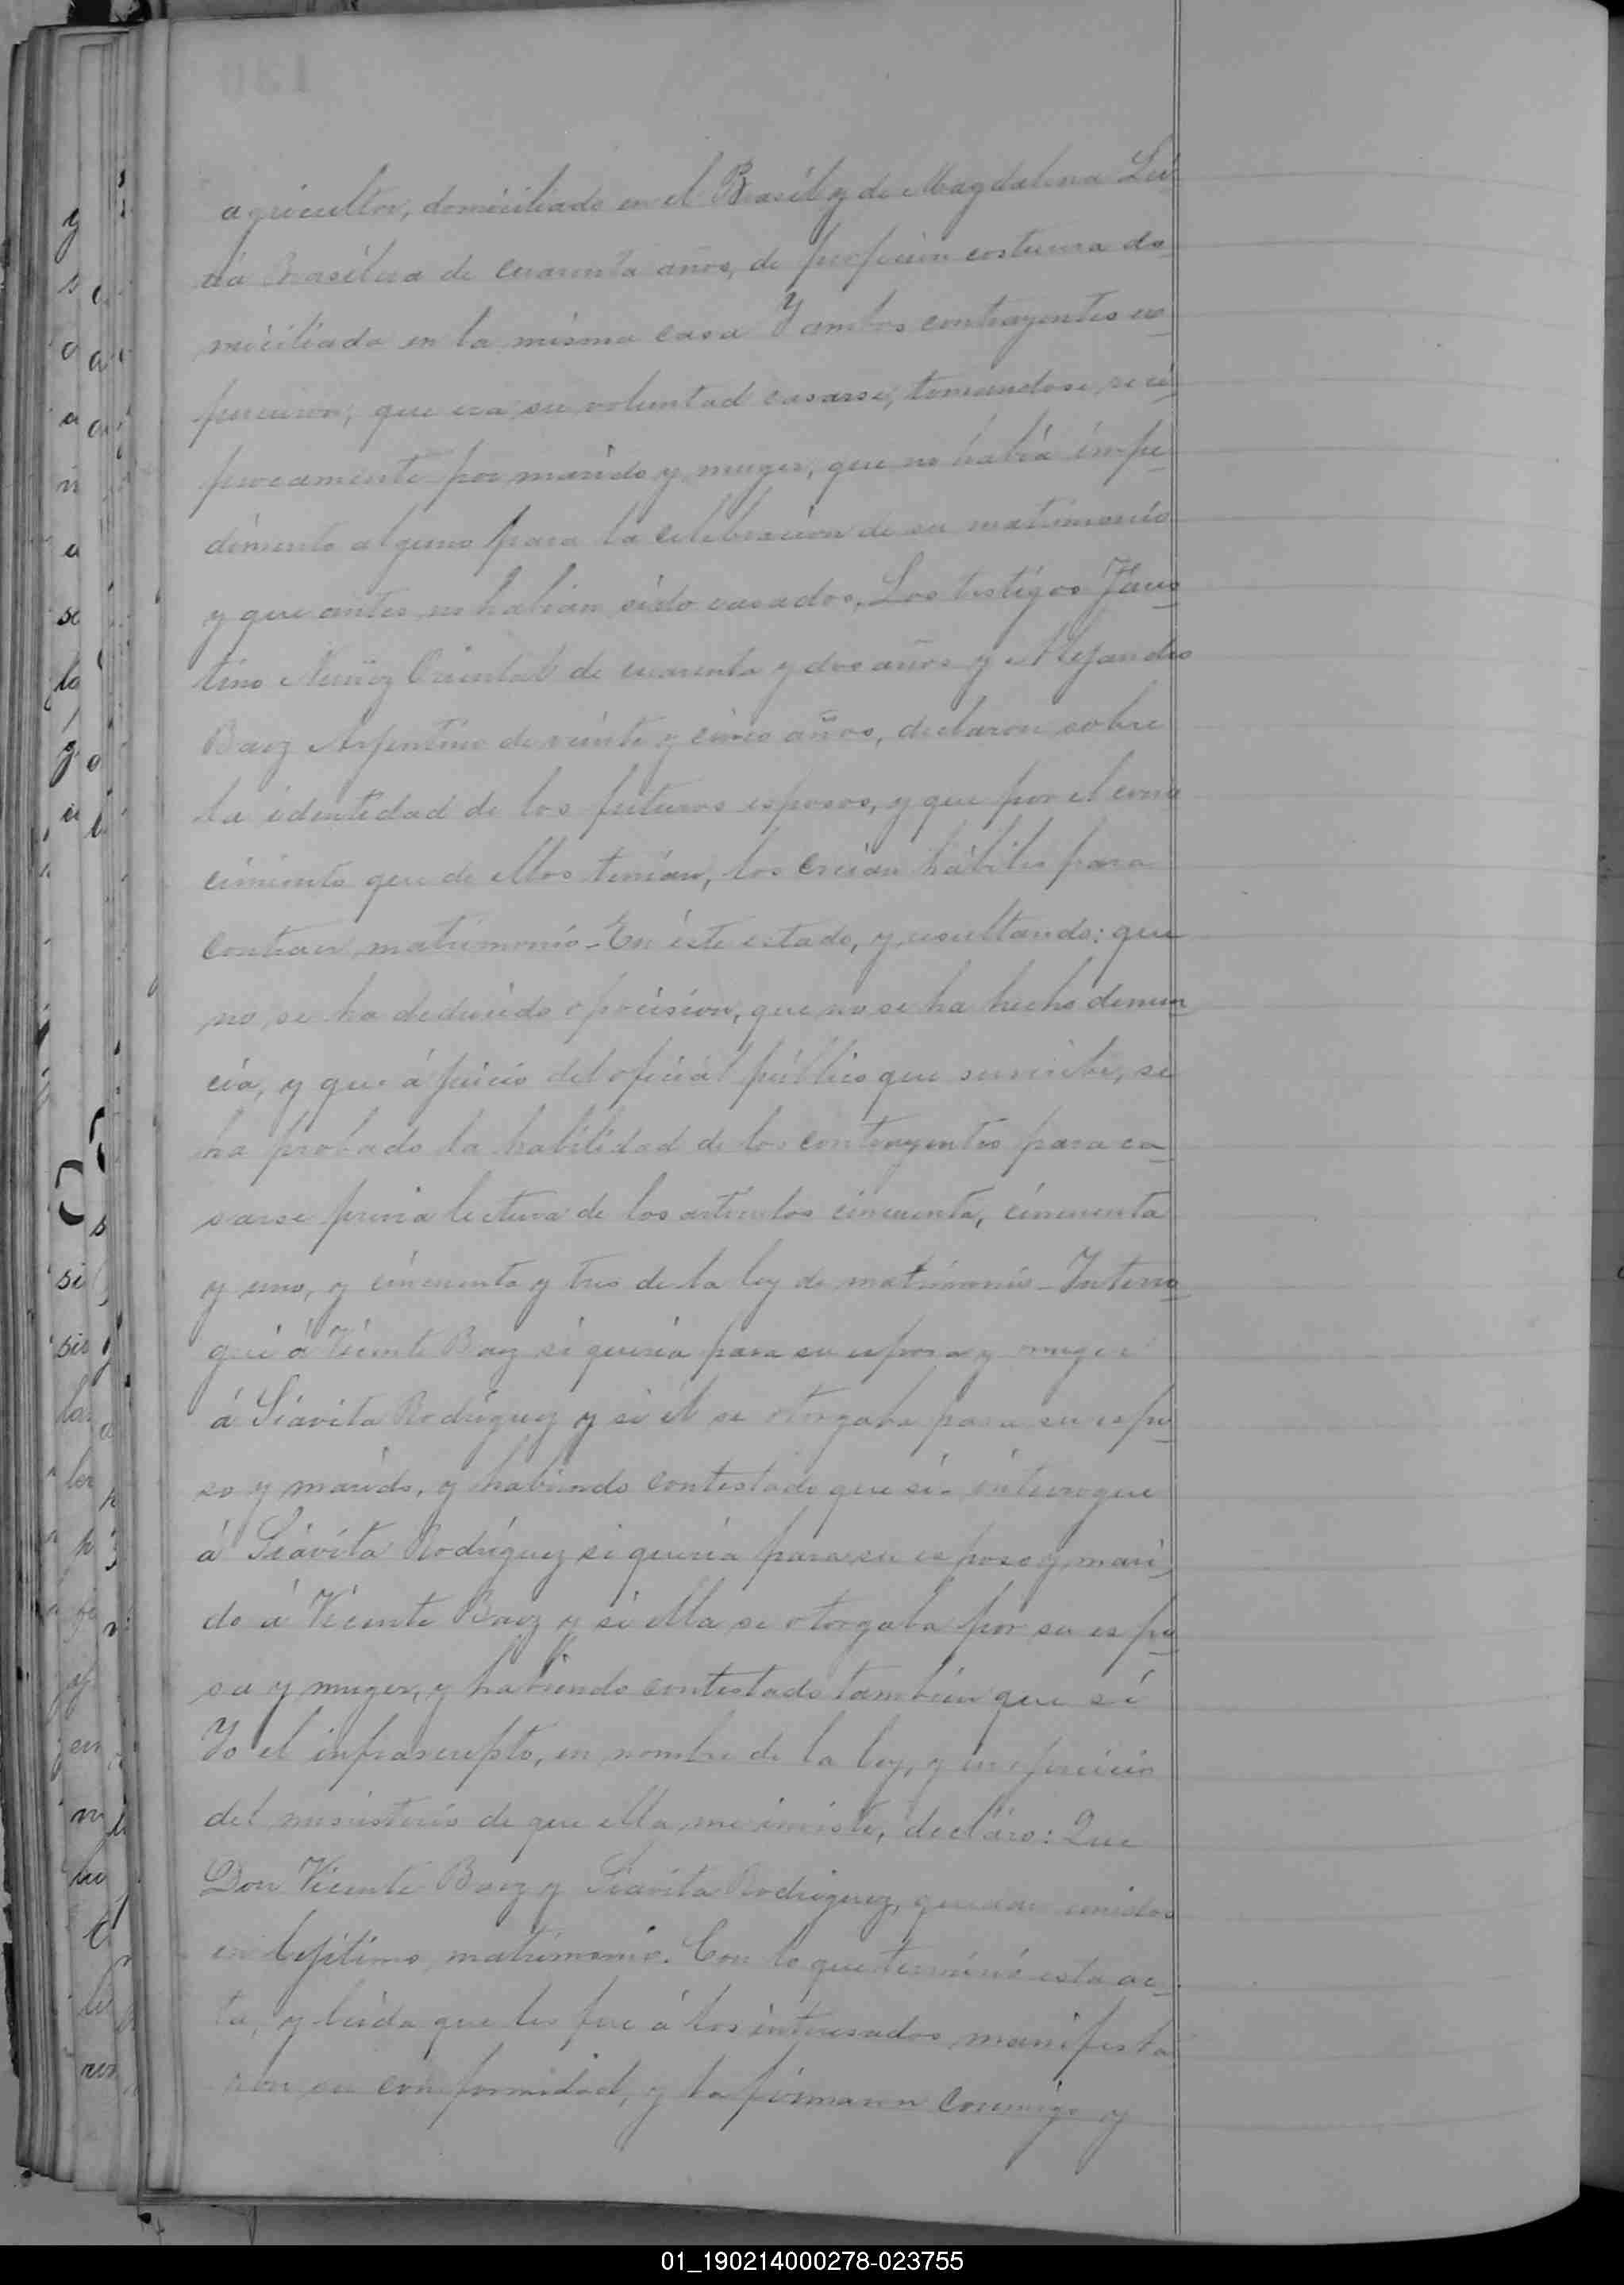 agricultor, domiciliado en el Brasil y de Magdalena
Brasilera de cuarenta años, de profesion costurera do_
miciliada en la misma casa Y ambos contrayentes ex_
pusieron, que era su voluntad casarse, tomandose, reci_
procamente por marido y muger, que no habia impe_
dimento alguno para la celebracion de su matrimonio
y que antes no habian sido casados. Los testigos Faus_
tino Nuñez Oriental de cuarenta y dos años y Alejandro
Baez Arjentino de veinte y cinco años, declaron sobre
la identidad de los futuros esposos, y que por el cono
cimiento que de ellos tenian, los creian hábiles para
contraer matrimonio - En éste estado, y resultando: que
no se ha deducido oposision, que no se ha hecho denun_
cia, y que á juicio del oficial público que suscribe, se
ha probado la habilidad de los contrayentes para ca_
sarse previa lectura de los articulos cincuenta, cincuenta
y uno, y cincuenta y tres de la ley de matrimonio - Interro_
gué á Vicente Baez si queria para su esposa y muger
á Siavita Rodriguez y si él se otorgaba para su espo_
so y marido, y habiendo contestado que si - interrogue
á Siavita Rodriguez si queria para su esposo y mari_
do á Vicente Baez y si ella se otorgaba por su espo_
sa y muger, y habiendo contestado tambien que sí
Yo el infrascripto, en nombre de la ley, y en ejercicio
del ministerio de que ella me inviste, declaro: Que
Don Vicente Baez y Siavita Rodriguez, quedan unidos
en lejitimo matrimonio. Con lo que terminó esta ac_
ta, y leida que les fue á los interesados manifesta
ron su conformidad, y la firmaron conmigo y
01_190214000278-023755